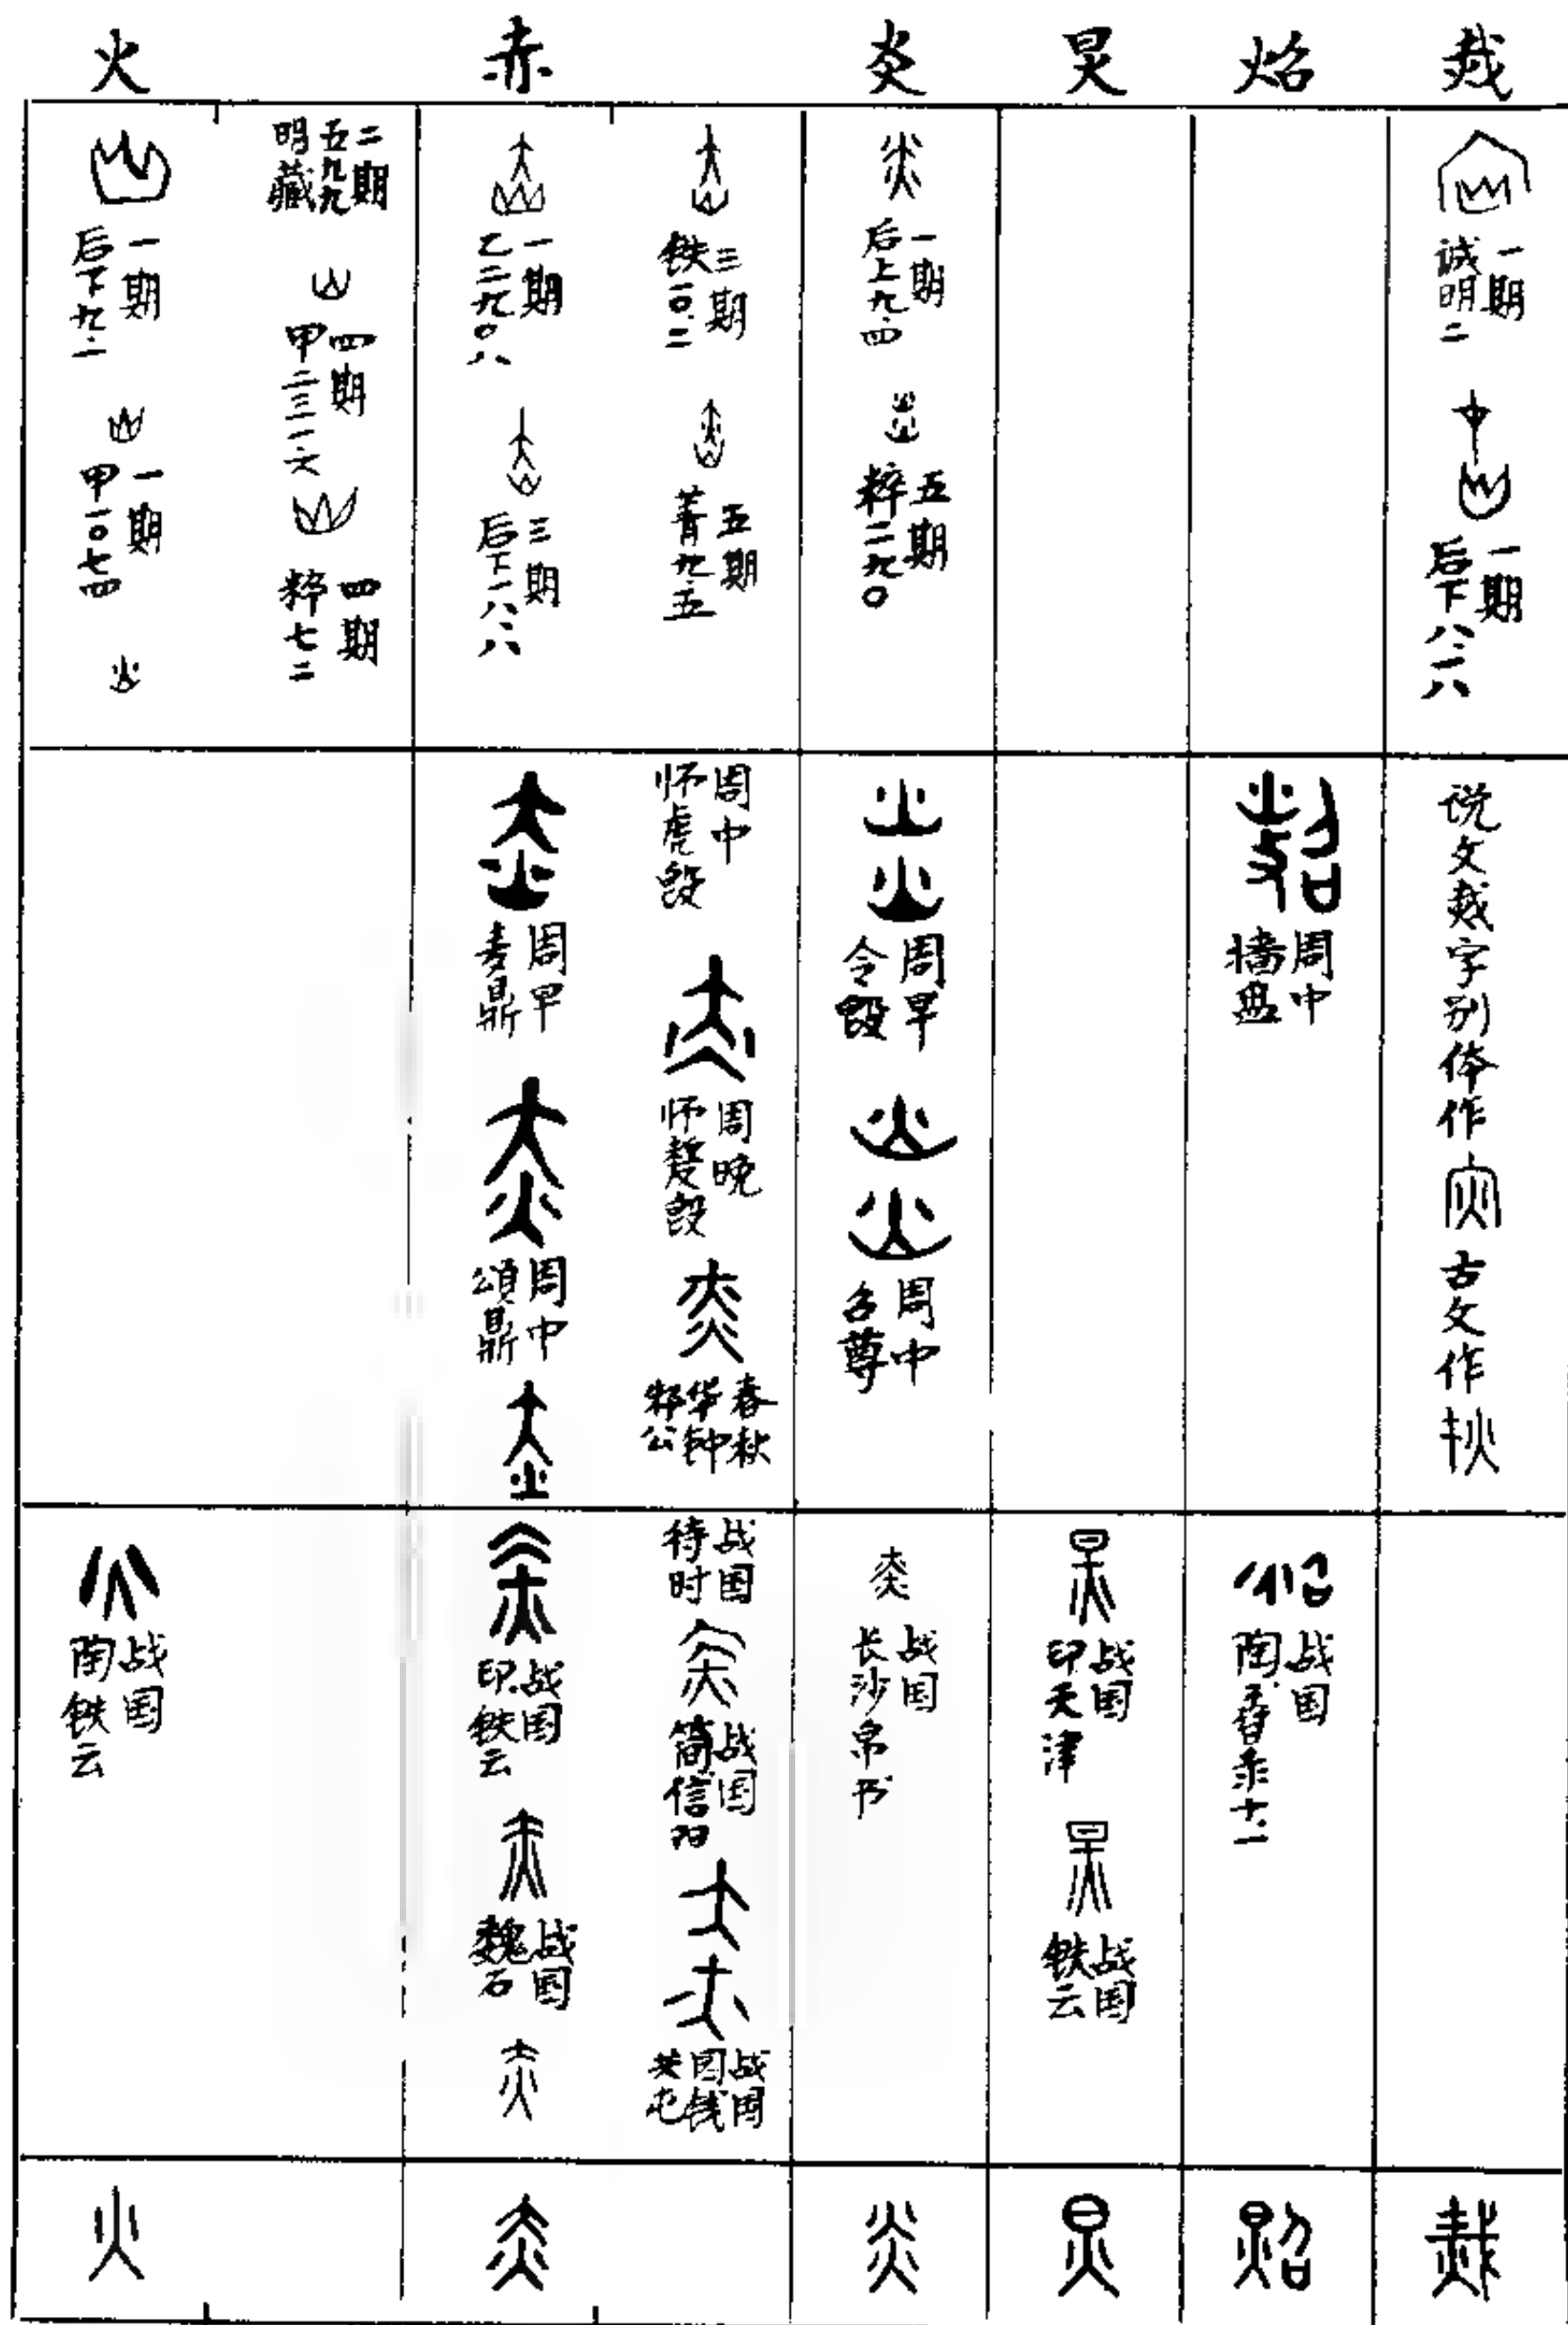 火 赤 炎 炅 焰 烖
一期
后下九.二
一期
甲一〇七四
二期
五九九
明藏
四期
甲二三一六
四期
粹七二
一期
乙二九〇八
三期
后下一八.八
三期
铁一〇.二
五期
菁九.五
一期
后上九.四
五期
粹二九〇
一期
诚明二
一期
后下八.一八
周早
麦鼎
周中
頌鼎
周中
师虎𣪘
周晚
师嫠𣪘
春秋
邾公
华钟
周早
令𣪘
周中
召尊
周中
墙盘
说文烖字别体作
灾
古文作
战国
陶铁云
战国
印铁云
战国
魏石
战国
待时
战国
简信阳
战国
圜钱
共屯
战国
长沙帛书
战国
印天津
战国
铁云
战国
陶
十.一
火 赤 炎 炅 照 烖